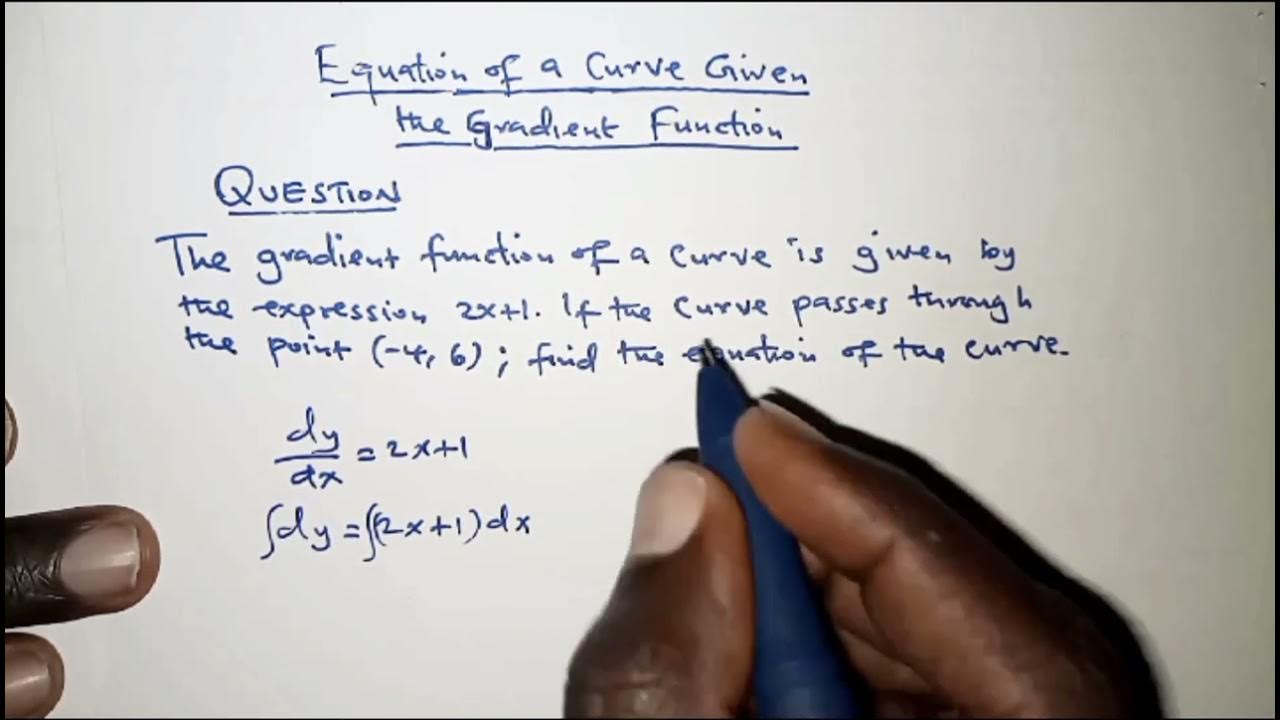 Equation of a Curve Given
the Gradient Function
QUESTION
The gradient function of a curve is given by
the expression 2x+1. If the curve passes through
the point (-4, 6); find the equation of the curve.
dy/dx = 2x+1
∫dy = ∫(2x+1)dx